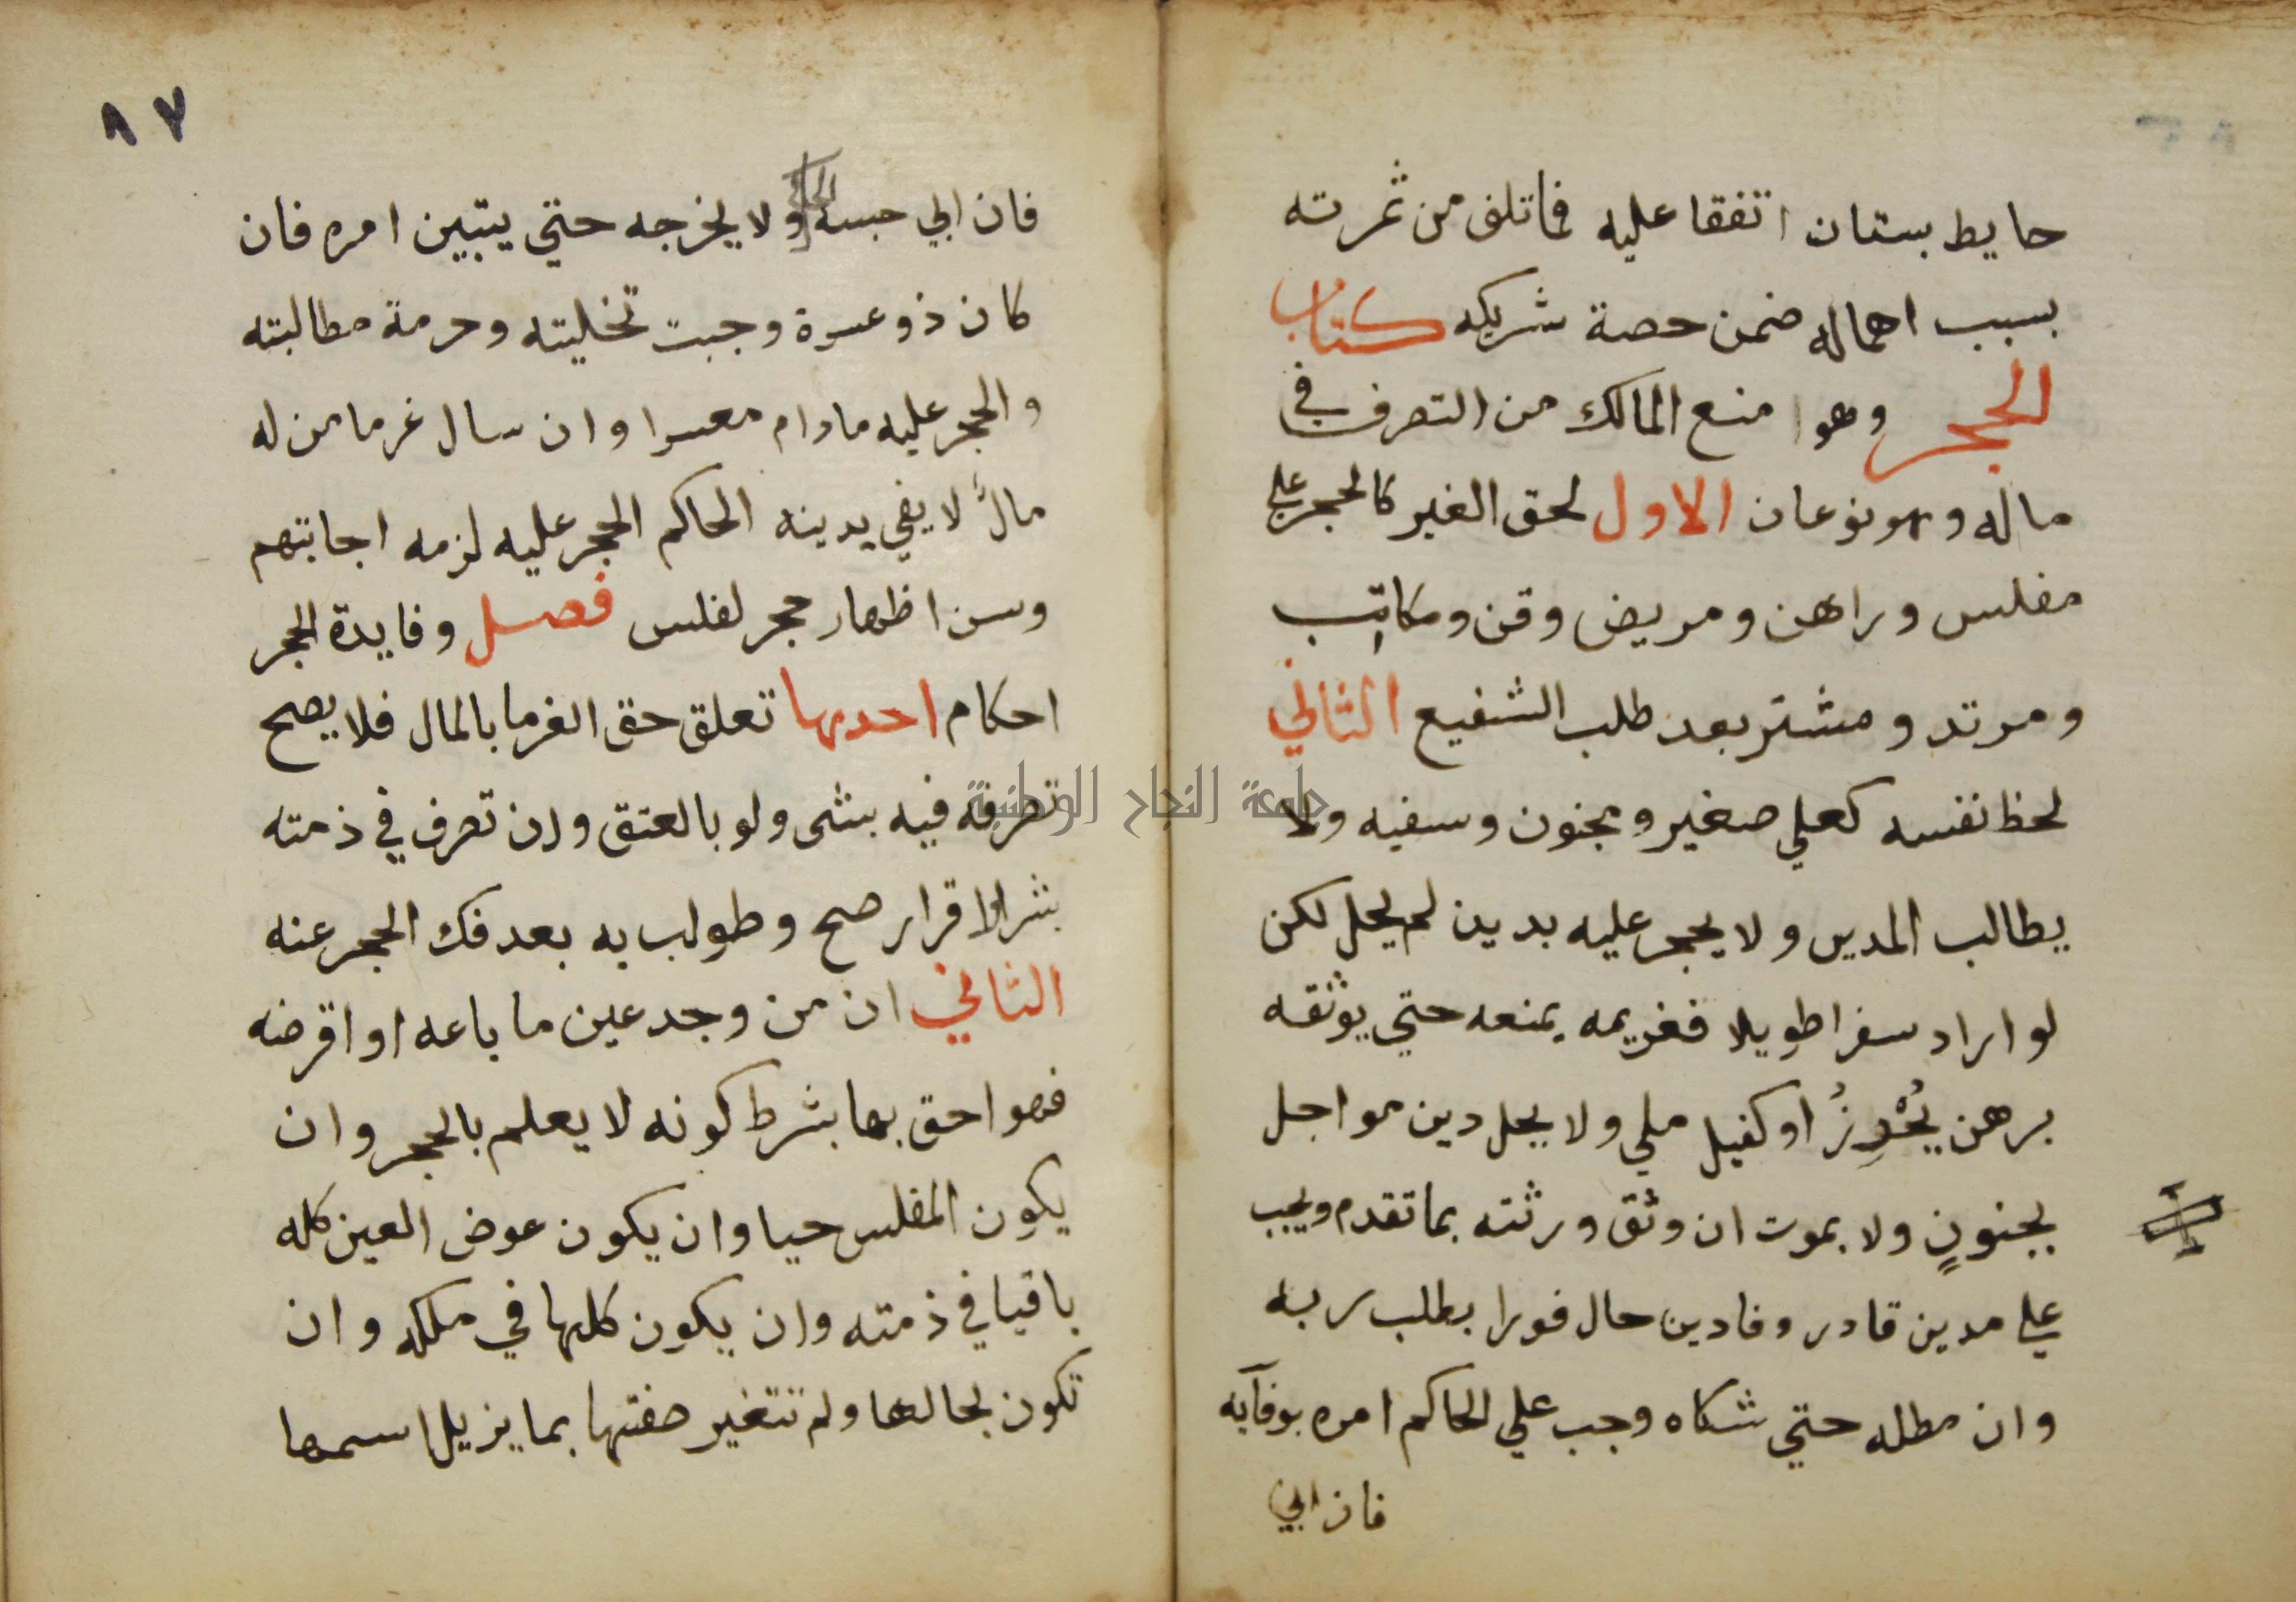 حايط بستان اتفقا عليه فما تلف من ثمرته
بسبب اهماله ضمن حصة شريكه كتاب
الحجر وهوا منع المالك من التصرف في
ماله وهو نوعان الاول لحق الغير كالحجر علي
مفلس وراهن ومريض وقن ومكاتب
ومرتد ومشتر بعد طلب الشفيع الثاني
لحظ نفسه كعلي صغير ومجنون وسفيه ولا
يطالب المدين ولا يحجر عليه بدين لم يحل لكن
لو اراد سفرا طويلا فغريمه يمنعه حتي يوثقه
برهن يُحْرِزُ او كفيل ملي ولا يحل دين مواجل
بجنونٍ ولا بموت ان وثق ورثته بما تقدم ويجب
علي مدين قادر وفا دين حال فورا بطلب ربه
وان مطله حتي شكاه وجب علي الحاكم امره بوفآيه
فان ابي
٨٧
فان ابي حبسه الحاكم ولا يخرجه حتي يتبين امره فان
كان ذو عسرة وجبت تخليته وحرمة مطالبته
والحجر عليه ما دام معسرا وان سال غرما من له
مالٌ لا يفي بدينه الحاكم الحجر عليه لزمه اجابتهم
وسن اظهار حجر لفلس فصل وفايدة الحجر
احكام احدها تعلق حق الغرما بالمال فلا يصح
تصرفه فيه بشي ولو بالعتق وان تصرف في ذمته
بشرا او اقرار صح وطولب به بعد فك الحجر عنه
الثاني ان من وجد عين ما باعه او اقرضه
فهو احق بها بشرط كونه لا يعلم بالحجر وان
يكون المفلس حيا وان يكون عوض العين كله
باقيا في ذمته وان يكون كلها في ملكه وان
تكون بحالها ولم تتغير صفتها بما يزيل اسمها
جامعة النجاح الوطنية